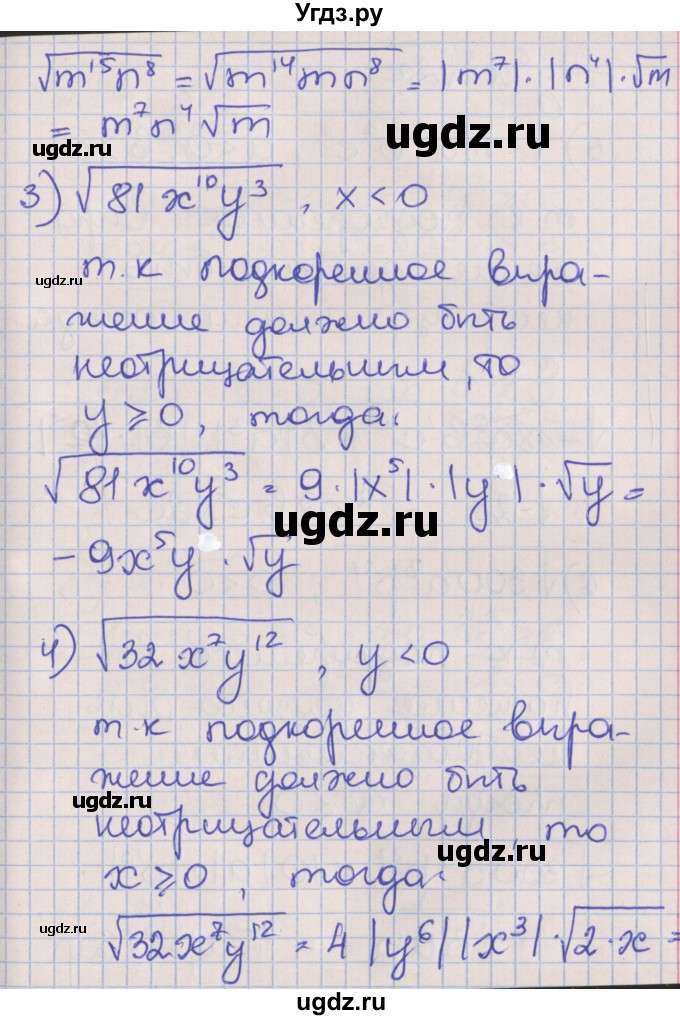 Угдз.ру
√m¹⁵n⁸ = √m¹⁴mn⁸ = |m⁷|·|n⁴|·√m
= m⁷n⁴√m
ugdz.ru
ugdz.ru
3) √81x¹⁰y³ , x<0
т.к подкоренное выра-
ugdz.ru
жение должно быть
неотрицательным, то
y⩾0, тогда:
√81x¹⁰y³ = 9·|x⁵|·|y|·√y =
ugdz.ru
-9x⁵y·√y
4) √32x⁷y¹² , y<0
т.к подкоренное выра-
жение должно быть
ugdz.ru
неотрицательным, то
ugdz.ru
x⩾0, тогда:
ugdz.ru
√32x⁷y¹² = 4|y⁶||x³|·√2·x =
ugdz.ru